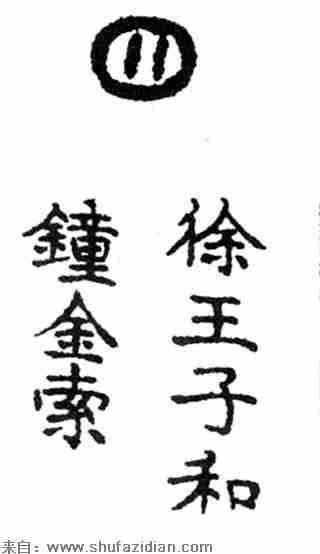 11
徐王子和
鐘金索
来自：www.shufazidian.com